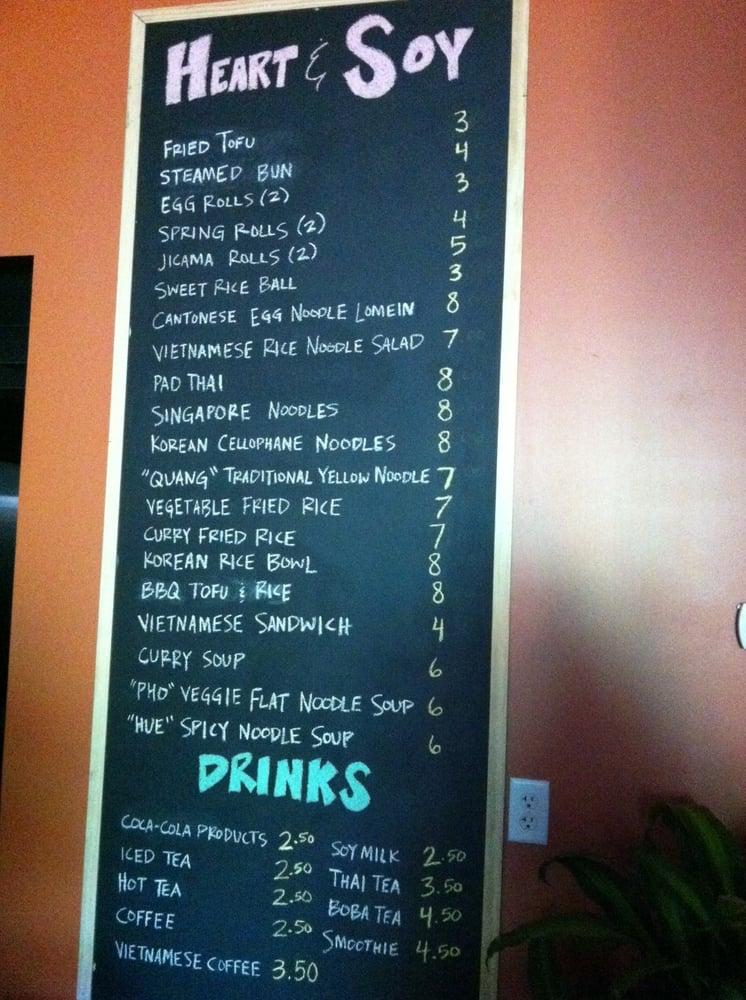 HEART & SOY
FRIED TOFU 3
STEAMED BUN 4
EGG ROLLS (2) 3
SPRING ROLLS (2) 4
JICAMA ROLLS (2) 5
SWEET RICE BALL 3
CANTONESE EGG NOODLE LOMEIN 8
VIETNAMESE RICE NOODLE SALAD 7
PAD THAI 8
SINGAPORE NOODLES 8
KOREAN CELLOPHANE NOODLES 8
"QUANG" TRADITIONAL YELLOW NOODLE 7
VEGETABLE FRIED RICE 7
CURRY FRIED RICE 7
KOREAN RICE BOWL 8
BBQ TOFU & RICE 8
VIETNAMESE SANDWICH 4
CURRY SOUP 6
"PHO" VEGGIE FLAT NOODLE SOUP 6
"HUE" SPICY NOODLE SOUP 6
DRINKS
COCA-COLA PRODUCTS 2.50
ICED TEA 2.50
HOT TEA 2.50
COFFEE 2.50
VIETNAMESE COFFEE 3.50
SOY MILK 2.50
THAI TEA 3.50
BOBA TEA 4.50
SMOOTHIE 4.50